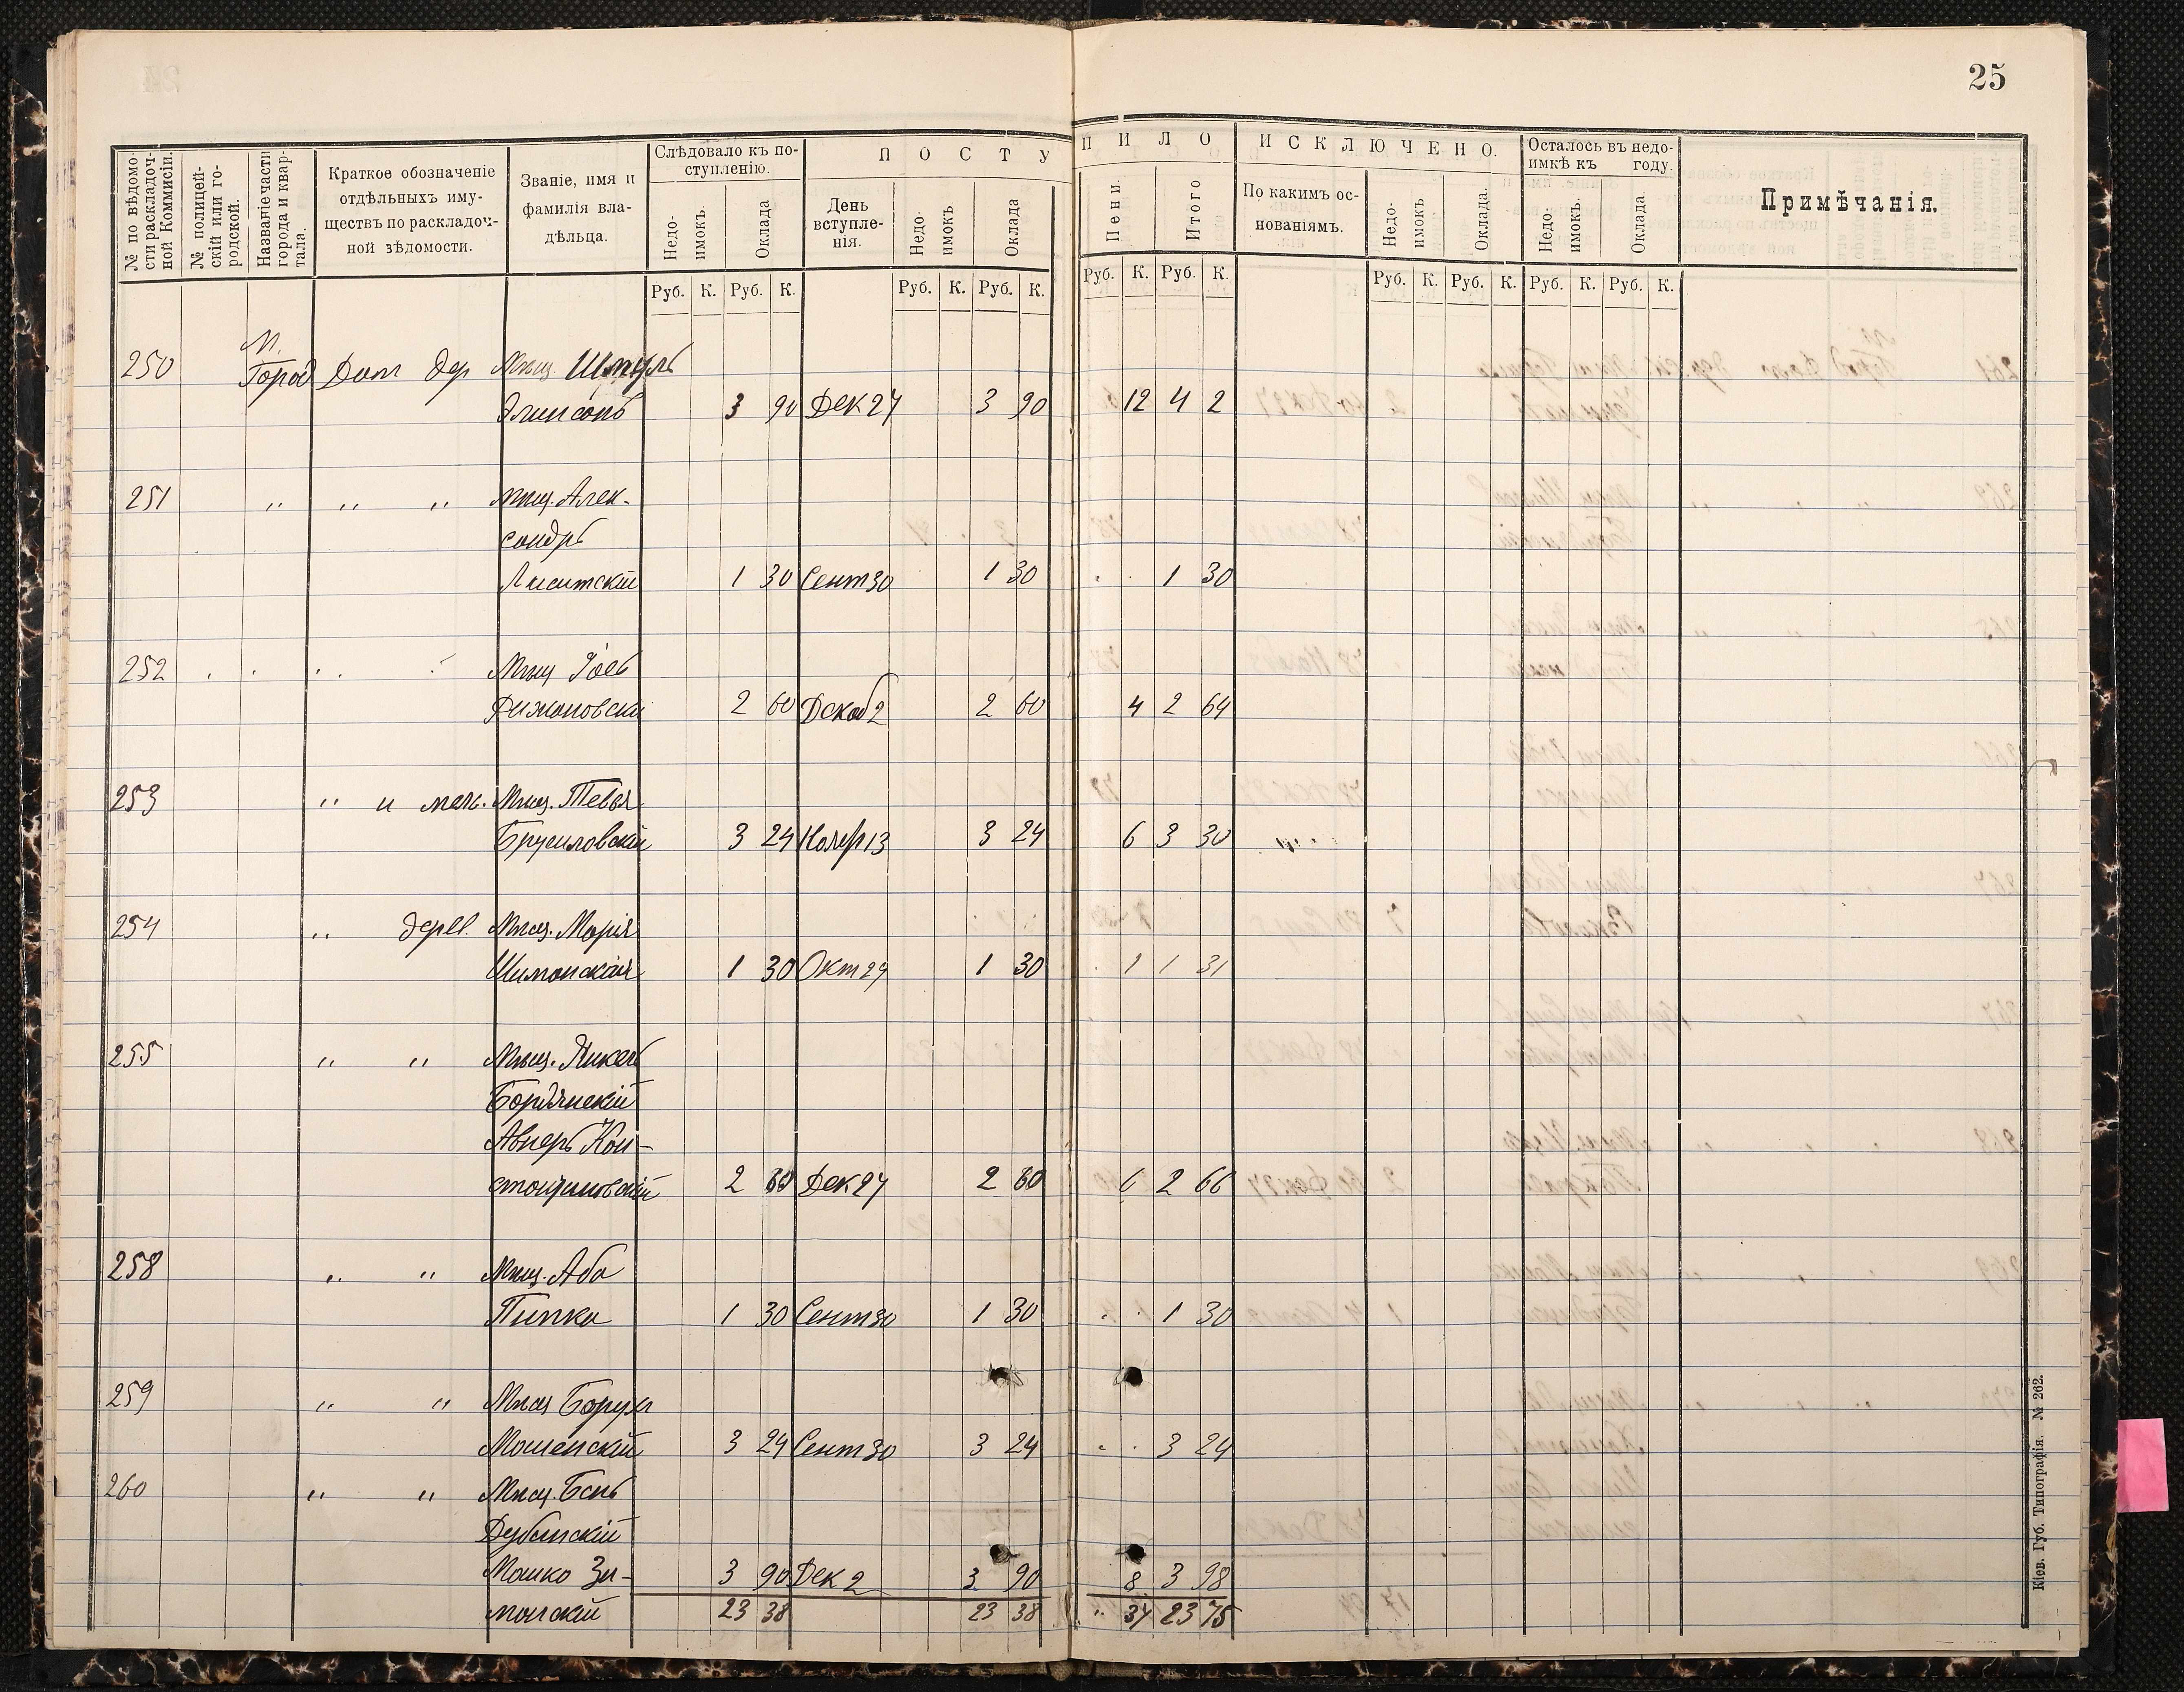 25
№ по вѣдомо-
сти раскладоч-
ной Коммисіи.
№ полицей-
скій или го-
родской.
Названіе части
города и квар-
тала.
Краткое обозначеніе
отдѣльныхъ иму-
ществъ по раскладоч-
ной зѣдомости.
Званіе, имя и
фамилія вла-
дѣльца.
Слѣдовало къ по-
ступленію.
Недо-
имокъ.
Оклада
П О С Т У П И Л О
День
вступле-
нія.
Недо-
имокъ
Оклада
Пени.
Итого
И С К Л Ю Ч Е Н О.
По какимъ ос-
нованіямъ.
Недо-
имокъ
Оклада.
Осталось въ недо-
имкѣ къ году.
Недо-
имокъ.
Оклада.
Примѣчанія.
Руб. К. Руб. К. Руб. К. Руб. К. Руб. К. Руб. К. Руб. К. Руб. К. Руб. К. Руб. К.
М.
250 Город Дом дер Мѣщ. Шмуль
3 90 Дек 27 3 90 12 4 2
251 " " " Мѣщ. Алек-
сандръ
1 30 Сент 30 1 30 . . 1 30
252 . . . . Мѣщ
2 60 Декаб 2 2 60 4 2 64
253 " и мел. Мѣщ. Тевья
Брусиловскій 3 24 Нояб 13 3 24 6 3 30
254 " дерев. Мѣщ. Марія
Шимонская 1 30 Окт 29 1 30 . 1 1 31
255 " " Мѣщ.
Бородянскій
Авнеръ Кон-
стантиновскій 2 60 Дек 27 2 60 6 2 66
258 " " Мѣщ. Аба
Пипка 1 30 Сент 30 1 30 . . 1 30
259 " " Мѣщ Борух
Мошенскій 3 24 Сент 30 3 24 . . 3 24
260 " " Мѣщ. Бень
Дубинскій
Мошко Зи-
3 90 Дек 2 3 90 8 3 98
монскій 23 38 23 38 " 37 23 75
Кіев. Губ. Типографія. № 262.